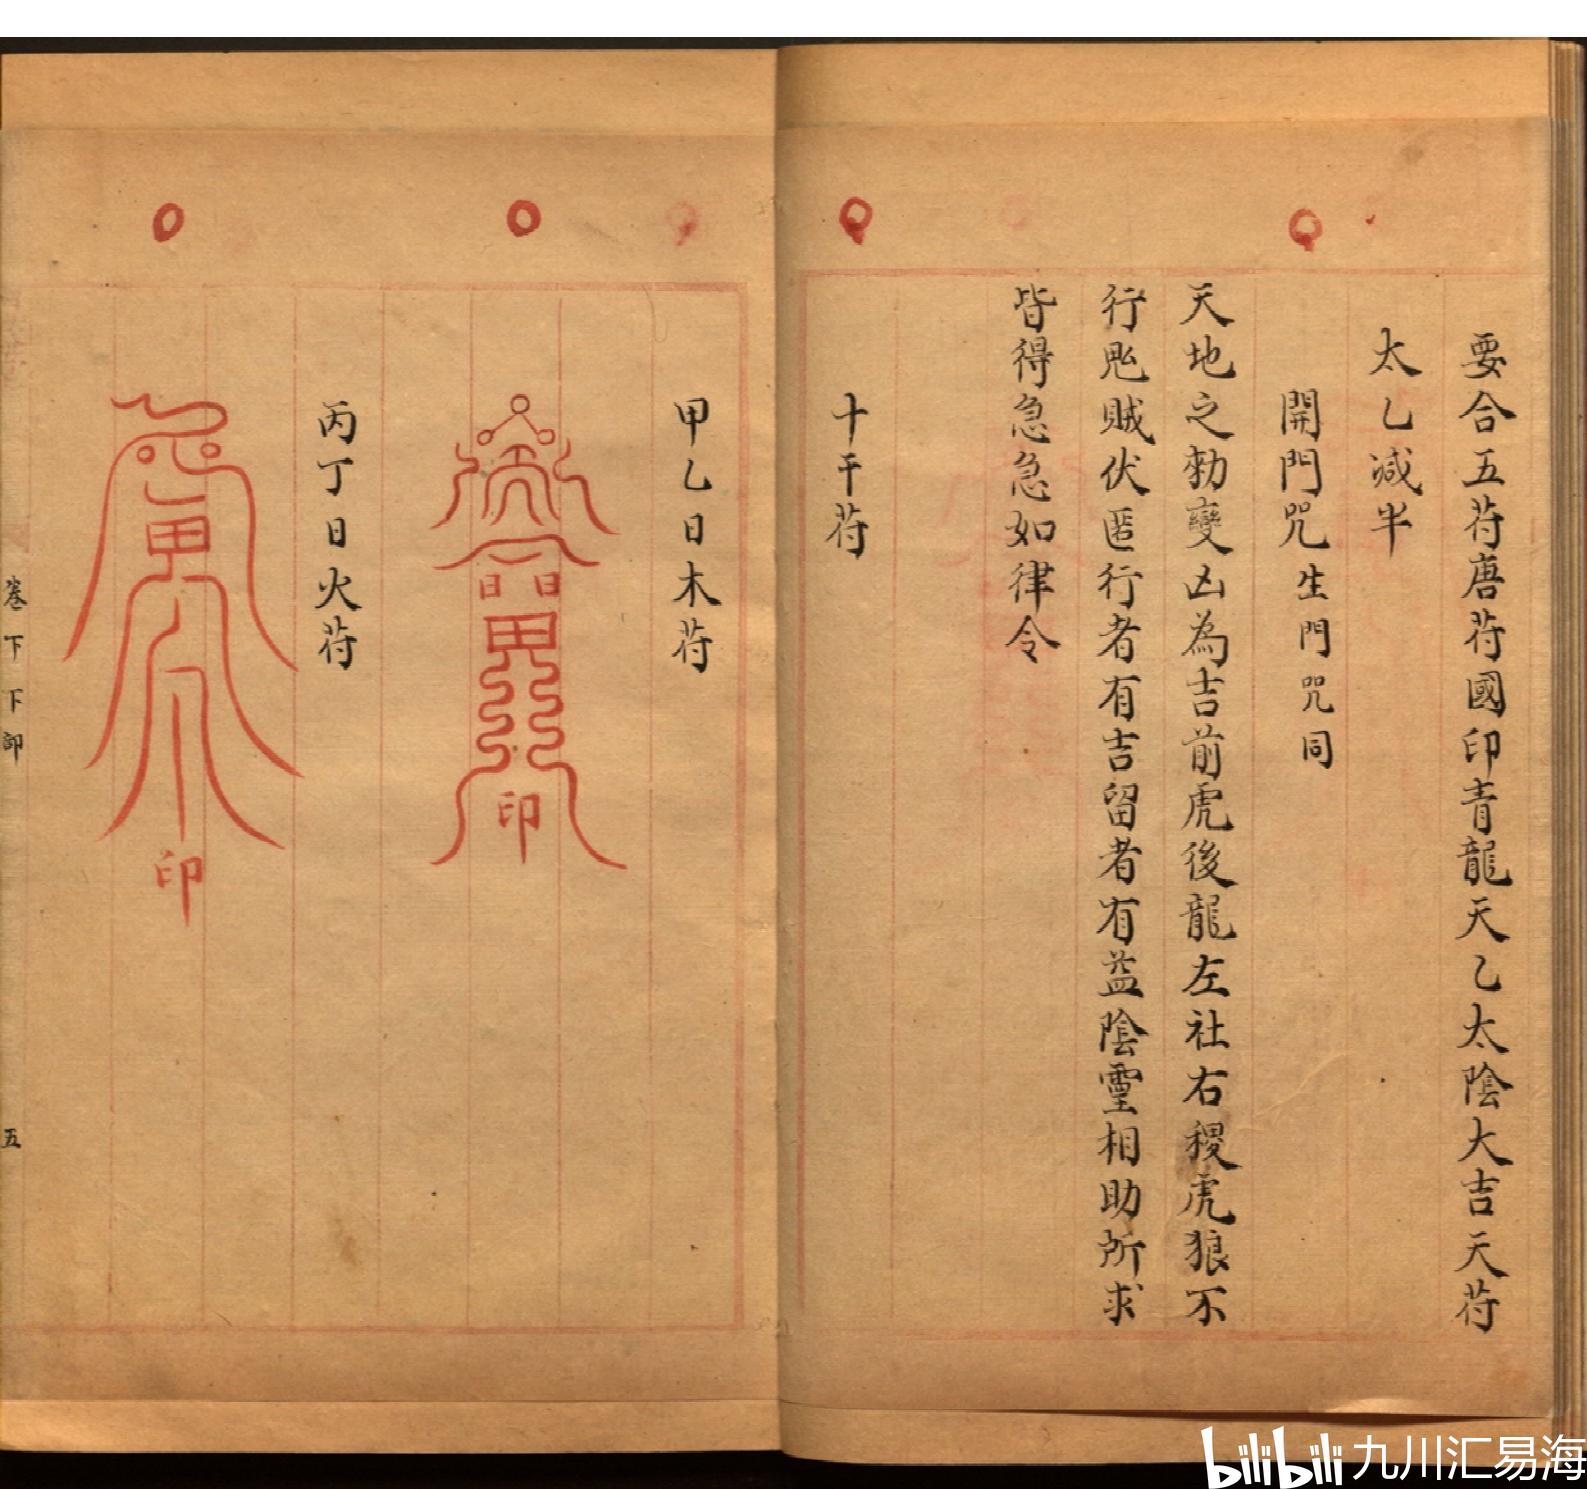 要合五苻唐苻國印青龍天乙太陰大吉天苻
太乙减半
開門咒生門咒同
天地之勑變凶為吉前虎後龍左社右稷虎狼不
行鬼賊伏匿行者有吉留者有益陰靈相助所求
皆得急急如律令
十干苻
甲乙日木苻
印
丙丁日火苻
印
卷下下
五
bilibili 九川汇易海